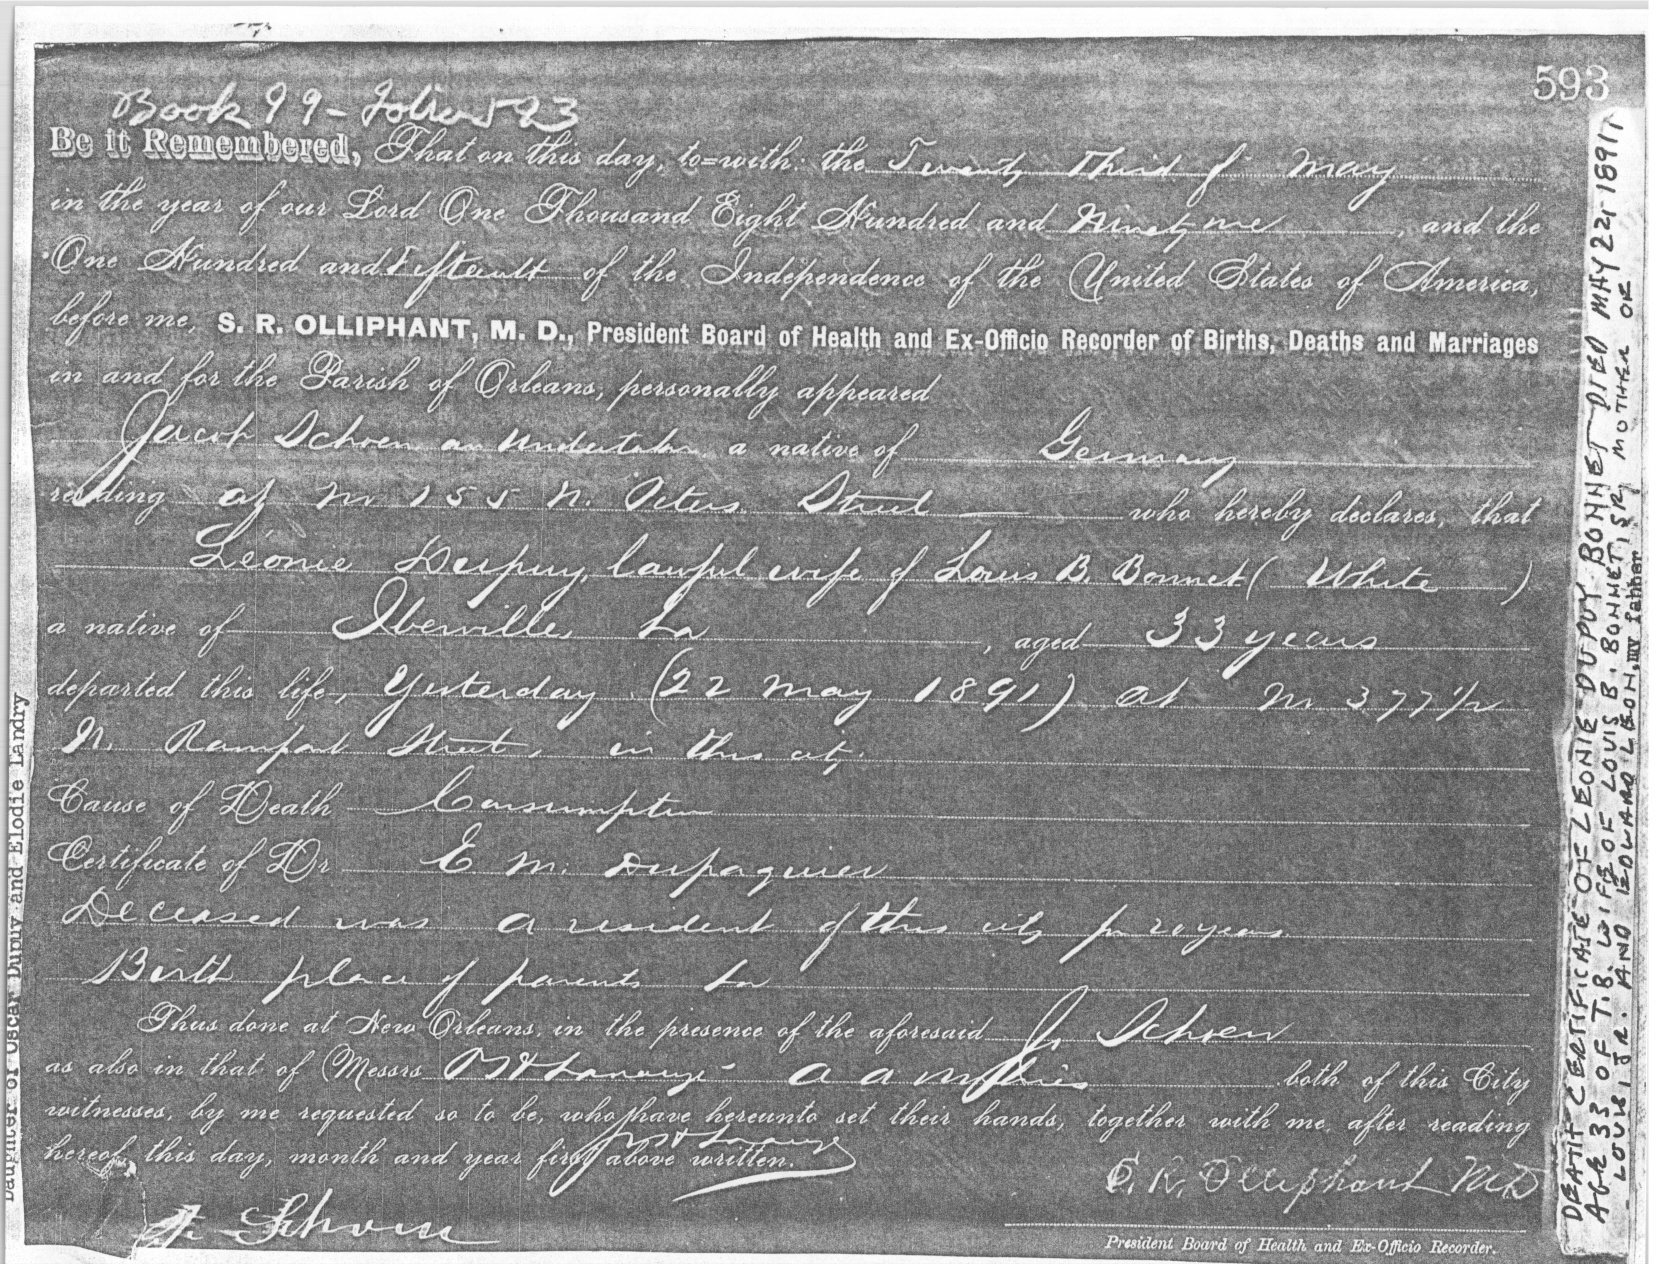 593
Book 99 - Folio 593
Be it Remembered, That on this day, to=with: the Twenty Third of May
in the year of our Lord One Thousand Eight Hundred and Ninety one, and the
One Hundred and Fifteenth of the Independence of the United States of America,
before me, S. R. OLLIPHANT, M. D., President Board of Health and Ex-Officio Recorder of Births, Deaths and Marriages
in and for the Parish of Orleans, personally appeared
Jacob Schoen an Undertaker a native of Germany
residing at No 155 N. Peters Street who hereby declares, that
Léonie Dupuy, lawful wife of Louis B. Bonnet (White)
a native of Iberville La, aged 33 years
departed this life, Yesterday (22 May 1891) at No 377 1/2
N. Rampart Street, in this city
Cause of Death Consumption
Certificate of Dr E M. Dupaquier
Deceased was a resident of this city for 20 years
Birth place of parents La
Thus done at New Orleans, in the presence of the aforesaid J. Schoen
as also in that of Messrs both of this City
witnesses, by me requested so to be, who have hereunto set their hands, together with me, after reading
hereof, this day, month and year first above written.
S. R. Olliphant MD
J. Schoen
President Board of Health and Ex-Officio Recorder.
DEATH CERTIFICATE OF LEONIE DUPUY BONNET DIED MAY 22, 1891
AGE 33 OF T.B. WIFE OF LOUIS B. BONNET SR, MOTHER OF
LOUIS, JR. AND EDWARD LEON, my father
Daughter of Oscar Dupuy and Elodie Landry